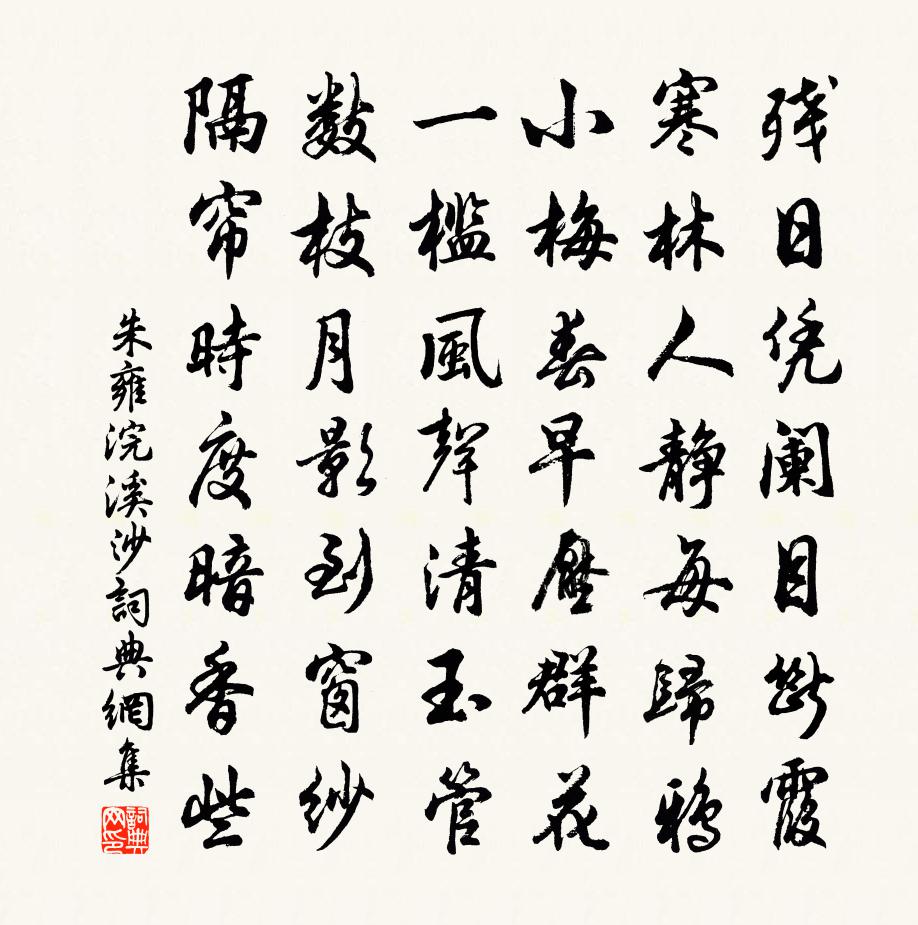 残日凭阑目断霞
寒林人静每歸鴉
小梅春早壓群花
一檻風聲清玉管
數枝月影到窗紗
隔帘時度暗香些
朱雍浣溪沙詞典網集
詞典网印